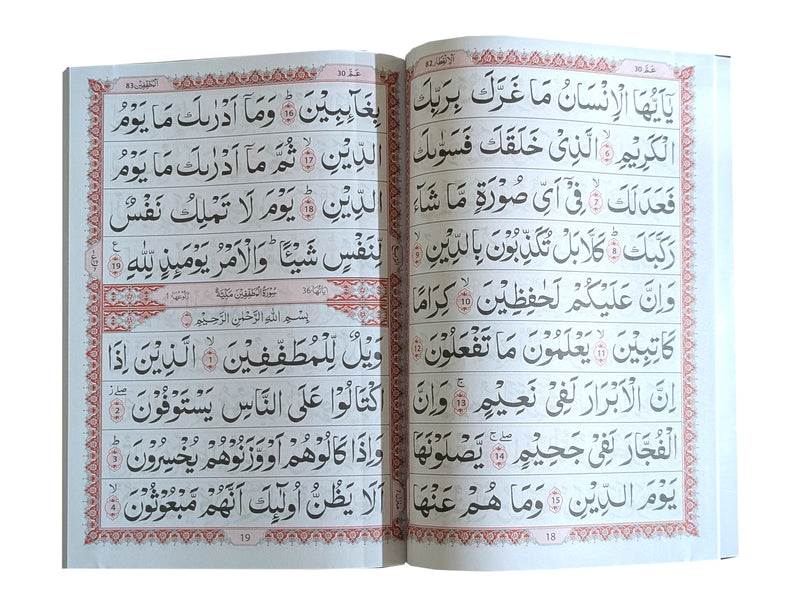 عم 30
الانفطار 82
يٰۤاَيُّهَا الْاِنْسَانُ مَا غَرَّكَ بِرَبِّكَ
الْكَرِيْمِ ۙ 6 الَّذِيْ خَلَقَكَ فَسَوّٰىكَ
فَعَدَلَكَ ۙ 7 فِيْۤ اَيِّ صُوْرَةٍ مَّا شَآءَ
رَكَّبَكَ ؕ 8 كَلَّا بَلْ تُكَذِّبُوْنَ بِالدِّيْنِ ۙ 9
وَاِنَّ عَلَيْكُمْ لَحٰفِظِيْنَ ۙ 10 كِرَامًا
كَاتِبِيْنَ ۙ 11 يَعْلَمُوْنَ مَا تَفْعَلُوْنَ 12
اِنَّ الْاَبْرَارَ لَفِيْ نَعِيْمٍ ۚ 13 وَاِنَّ
الْفُجَّارَ لَفِيْ جَحِيْمٍ ۖۚ 14 يَّصْلَوْنَهَا
يَوْمَ الدِّيْنِ 15 وَمَا هُمْ عَنْهَا
18
عم 30
المطففين 83
بِغَآئِبِيْنَ ؕ 16 وَمَاۤ اَدْرٰىكَ مَا يَوْمُ
الدِّيْنِ ۙ 17 ثُمَّ مَاۤ اَدْرٰىكَ مَا يَوْمُ
الدِّيْنِ ؕ 18 يَوْمَ لَا تَمْلِكُ نَفْسٌ
لِّنَفْسٍ شَيْـًٔا ؕ وَالْاَمْرُ يَوْمَئِذٍ لِّلّٰهِ 19 ع
اٰيَاتُهَا 36 سُوْرَةُ الْمُطَفِّفِيْنَ مَكِّيَّةٌ رُكُوْعُهَا 1
بِسْمِ اللّٰهِ الرَّحْمٰنِ الرَّحِيْمِ
وَيْلٌ لِّلْمُطَفِّفِيْنَ ۙ 1 الَّذِيْنَ اِذَا
اكْتَالُوْا عَلَى النَّاسِ يَسْتَوْفُوْنَ 2
وَاِذَا كَالُوْهُمْ اَوْ وَّزَنُوْهُمْ يُخْسِرُوْنَ ؕ 3
اَلَا يَظُنُّ اُولٰٓئِكَ اَنَّهُمْ مَّبْعُوْثُوْنَ ۙ 4
19